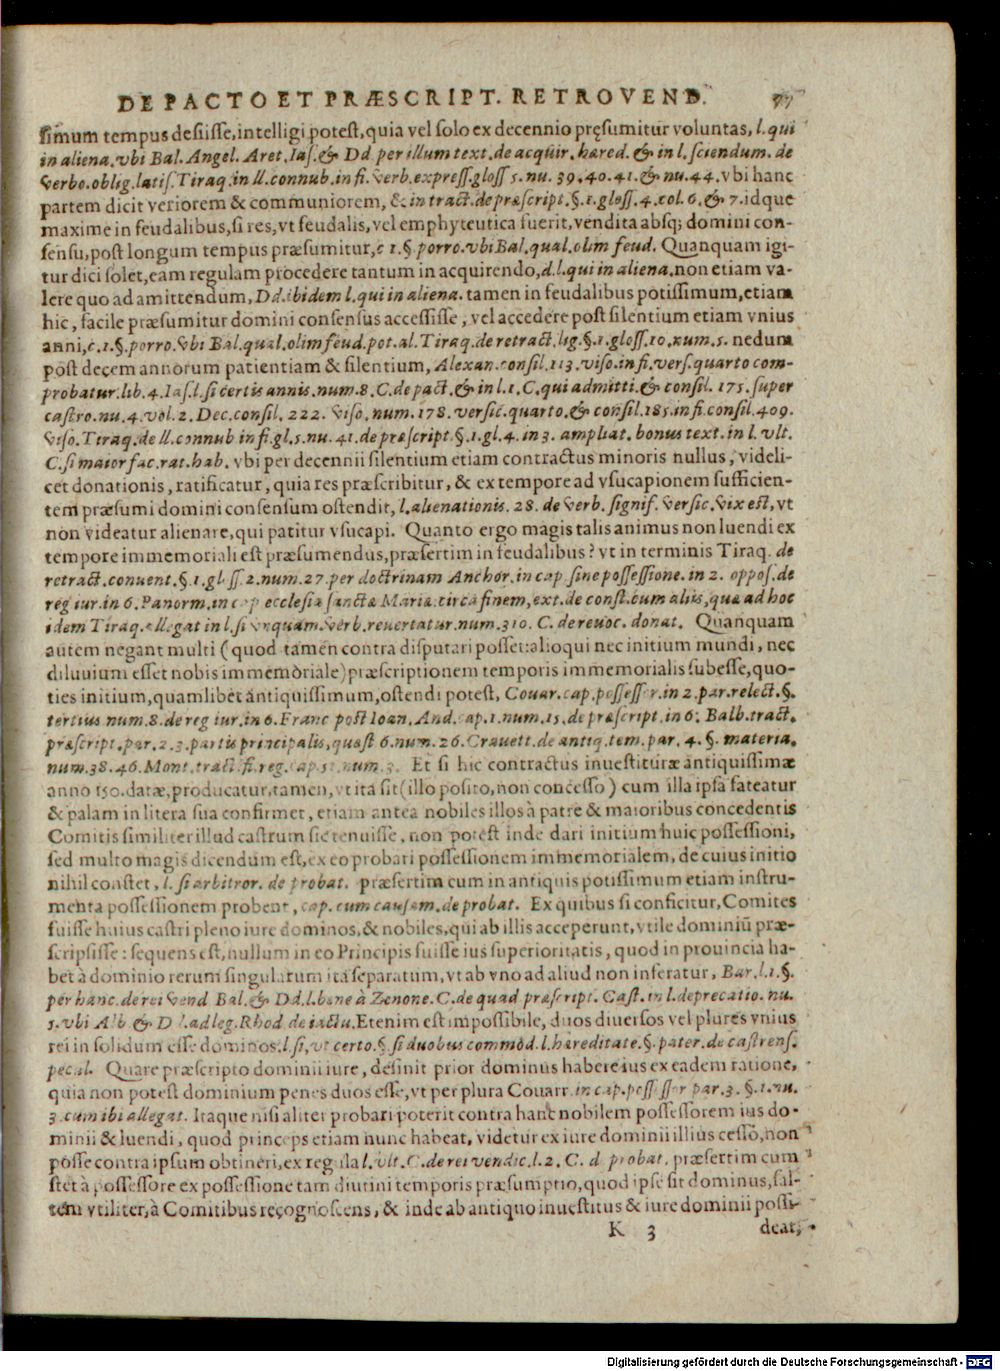 DE PACTO ET PRÆSCRIPT. RETROVEND. 77
simum tempus desiisse, intelligi potest, quia vel solo ex decennio pręsumitur voluntas, l. qui
in aliena. vbi Bal. Angel. Aret. Ias. & Dd per illum text. de acquir. hæred. & in l. sciendum. de
verbo. oblig. latis. Tiraq. in ll. connub. in fi. verb. express. gloss 5. nu. 39. 40. 41. & nu. 44. vbi hanc
partem dicit veriorem & communiorem, & in tract. de præscript. §. 1. gloss. 4. col. 6. & 7. idque
maxime in feudalibus, si res, vt feudalis, vel emphyteutica fuerit, vendita absq; domini con-
sensu, post longum tempus præsumitur, c 1. § porro. vbi Bal. qual. olim feud. Quanquam igi-
tur dici solet, eam regulam procedere tantum in acquirendo, d. l. qui in aliena. non etiam va-
lere quo ad amittendum, Dd. ibidem l. qui in aliena. tamen in feudalibus potissimum, etiam
hic, facile præsumitur domini consensus accessisse, vel accedere post silentium etiam vnius
anni, c. 1. §. porro. vbi Bal. qual. olim feud. pot. al. Tiraq. de retract. lig. §. 1. gloss. 10. num. 5. nedum
post decem annorum patientiam & silentium, Alexan. consil. 113. viso. in fi. vers. quarto com-
probatur. lib. 4. Ias. l. si certis annis. num. 8. C. de pact. & in l. 1. C. qui admitti. & consil. 175. super
castro. nu. 4. vol. 2. Dec. consil. 222. viso. num. 178. versic. quarto. & consil. 185. in fi. consil. 409.
viso. Tiraq. de ll. connub in fi. gl. 5. nu. 41. de præscript. §. 1. gl. 4. in 3. ampliat. bonus text. in l. vlt.
C. si maior fac. rat. hab. vbi per decennii silentium etiam contractus minoris nullus, videli-
cet donationis, ratificatur, quia res præscribitur, & ex tempore ad vsucapionem sufficien-
tem præsumi domini consensum ostendit, l. alienationis. 28. de verb. signif. versic. vix est, vt
non videatur alienare, qui patitur vsucapi. Quanto ergo magis talis animus non luendi ex
tempore immemoriali est præsumendus, præsertim in feudalibus? vt in terminis Tiraq. de
retract. conuent. §. 1. gl ss. 2. num. 27. per doctrinam Anchor. in cap sine possessione. in 2. oppos. de
reg iur. in 6. Panorm. in cap ecclesia sanctæ Mariæ. circa finem, ext. de const. cum aliis, quæ ad hoc
idem Tiraq. allegat in l. si vnquam. verb. reuertatur. num. 310. C. de reuoc. donat. Quanquam
autem negant multi (quod tamen contra disputari posset: alioqui nec initium mundi, nec
diluuium esset nobis immemoriale) præscriptionem temporis immemorialis subesse, quo-
ties initium, quamlibet antiquissimum, ostendi potest, Couar. cap. possessor. in 2. par. relect. §.
tertius num. 8. de reg iur. in 6. Franc post Ioan. And. cap. 1. num. 15. de præscript. in 6. Balb. tract.
præscript. par. 2. 3. partis principalis, quæst 6. num. 26. Crauett. de antiq. tem. par. 4. §. materia.
num. 38. 46. Mont. tract. fi. reg. cap. 51. num. 3. Et si hic contractus inuestituræ antiquissimæ
anno 150. datæ, producatur, tamen, vt ita sit (illo posito, non concesso) cum illa ipsa fateatur
& palam in litera sua confirmet, etiam antea nobiles illos à patre & maioribus concedentis
Comitis similiter illud castrum sic tenuisse, non potest inde dari initium huic possessioni,
sed multo magis dicendum est, ex eo probari possessionem immemorialem, de cuius initio
nihil constet, l. si arbitror. de probat. præsertim cum in antiquis potissimum etiam instru-
menta possessionem probent, cap. cum causam. de probat. Ex quibus si conficitur, Comites
fuisse huius castri pleno iure dominos, & nobiles, qui ab illis acceperunt, vtile dominiũ præ-
scripsisse: sequens est, nullum in eo Principis fuisse ius superioritatis, quod in prouincia ha-
bet à dominio rerum singularum ita separatum, vt ab vno ad aliud non inferatur, Bar. l. 1. §.
per hanc. de rei vend Bal. & Dd. l. bene à Zenone. C. de quad præscript. Cast. in l. deprecatio. nu.
5. vbi Alb & D l. ad leg. Rhod de iactu. Etenim est impossibile, duos diuersos vel plures vnius
rei in solidum esse dominos. l. si, vt certo. §. si duobus commod. l. hæreditate. §. pater. de castrens.
pecul. Quare præscripto dominii iure, desinit prior dominus habere ius ex eadem ratione,
quia non potest dominium penes duos esse, vt per plura Couarr. in cap. possessor par. 3. §. 1. nu.
3. cum ibi allegat. Itaque nisi aliter probari poterit contra hanc nobilem possessorem ius do-
minii & luendi, quod princeps etiam nunc habeat, videtur ex iure dominii illius cesso, non
posse contra ipsum obtineri, ex regula l. vlt. C. de rei vendic. l. 2. C. d probat. præsertim cum
stet à possessore ex possessione tam diutini temporis præsumptio, quod ipse sit dominus, sal-
tem vtiliter, à Comitibus recognoscens, & inde ab antiquo inuestitus & iure dominii possi-
K 3 deat,
Digitalisierung gefördert durch die Deutsche Forschungsgemeinschaft - DFG